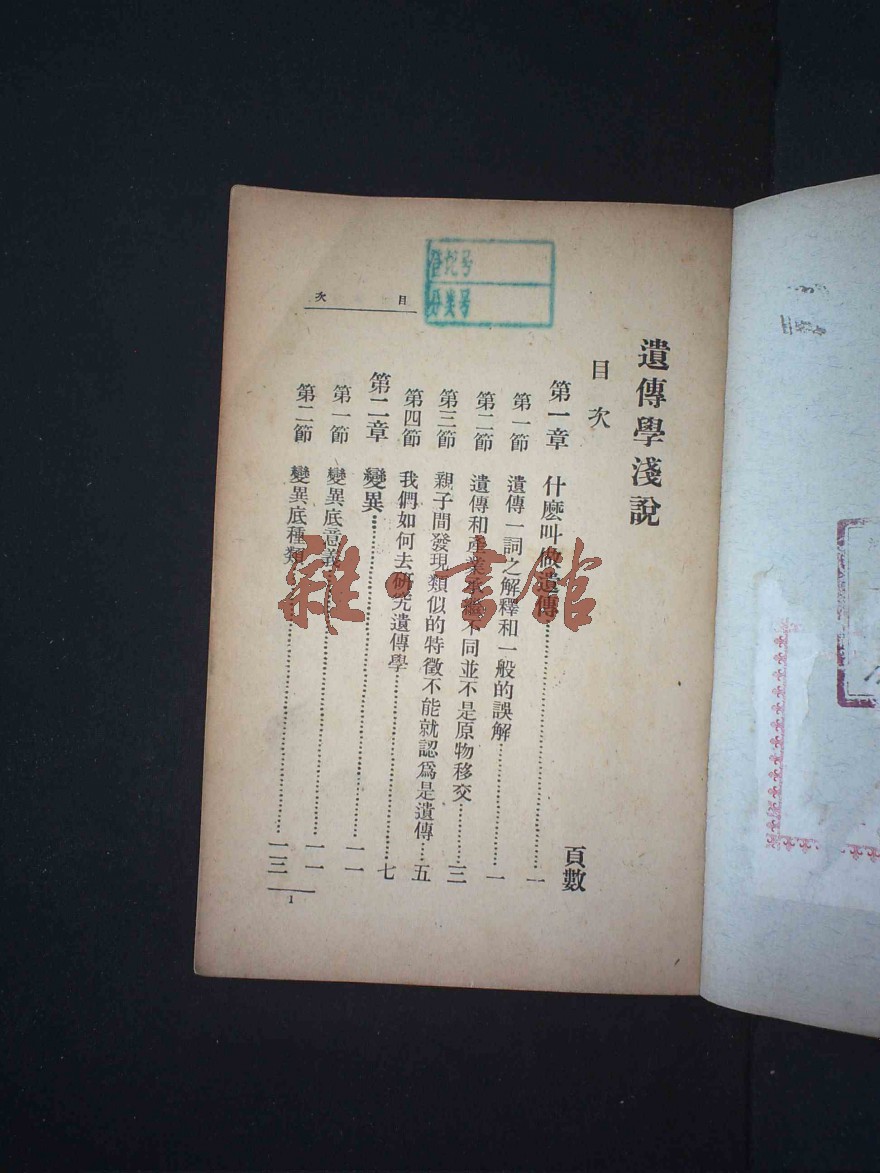 遺傳學淺說
目次
頁數
第一章 什麼叫做遺傳……一
第一節 遺傳一詞之解釋和一般的誤解……一
第二節 遺傳和產業承繼不同並不是原物移交……三
第三節 親子間發現類似的特徵不能就認爲是遺傳……五
第四節 我們如何去研究遺傳學……七
第二章 變異……一一
第一節 變異底意義……一一
第二節 變異底種類……一三
目次
1
登記号
分类号
雜·書館